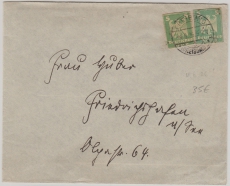 Frau Huber
Friedrichshafen
a/See
Olgastr. 64.